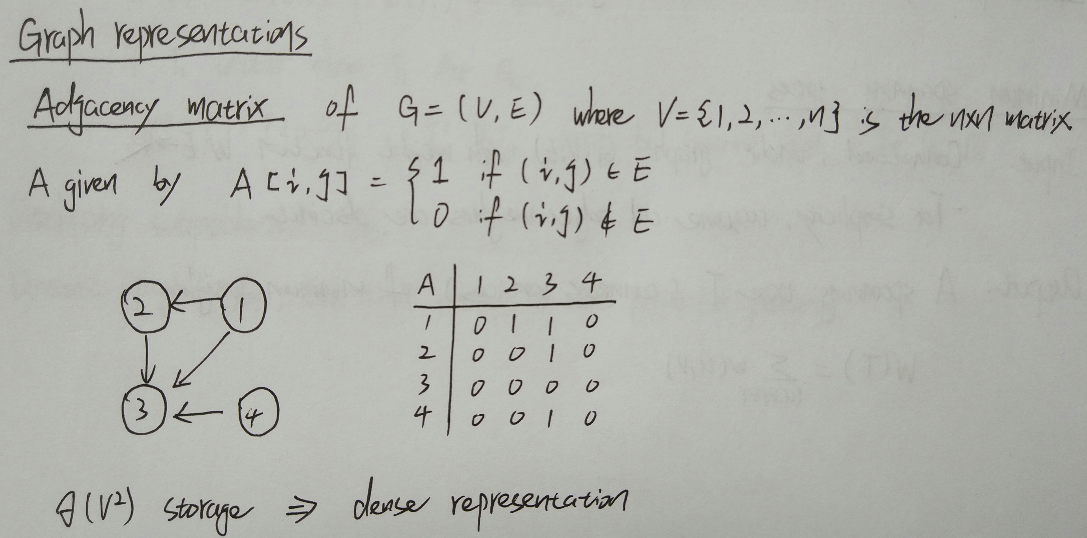 Graph representations
Adjacency matrix of G = (V, E) where V = {1, 2, ..., n} is the n×n matrix
A given by A[i, j] = { 1 if (i, j) ∈ E
0 if (i, j) ∉ E
A | 1 2 3 4
1 | 0 1 1 0
2 | 0 0 1 0
3 | 0 0 0 0
4 | 0 0 1 0
2 1
3 4
θ(V²) storage ⇒ dense representation